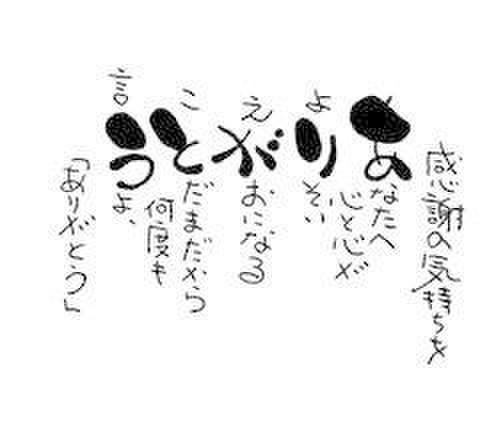 感謝の気持ちを
あなたへ
心と心が
よりそい
えがおになる
ことだまだから
何度も
言うよ、
「ありがとう」